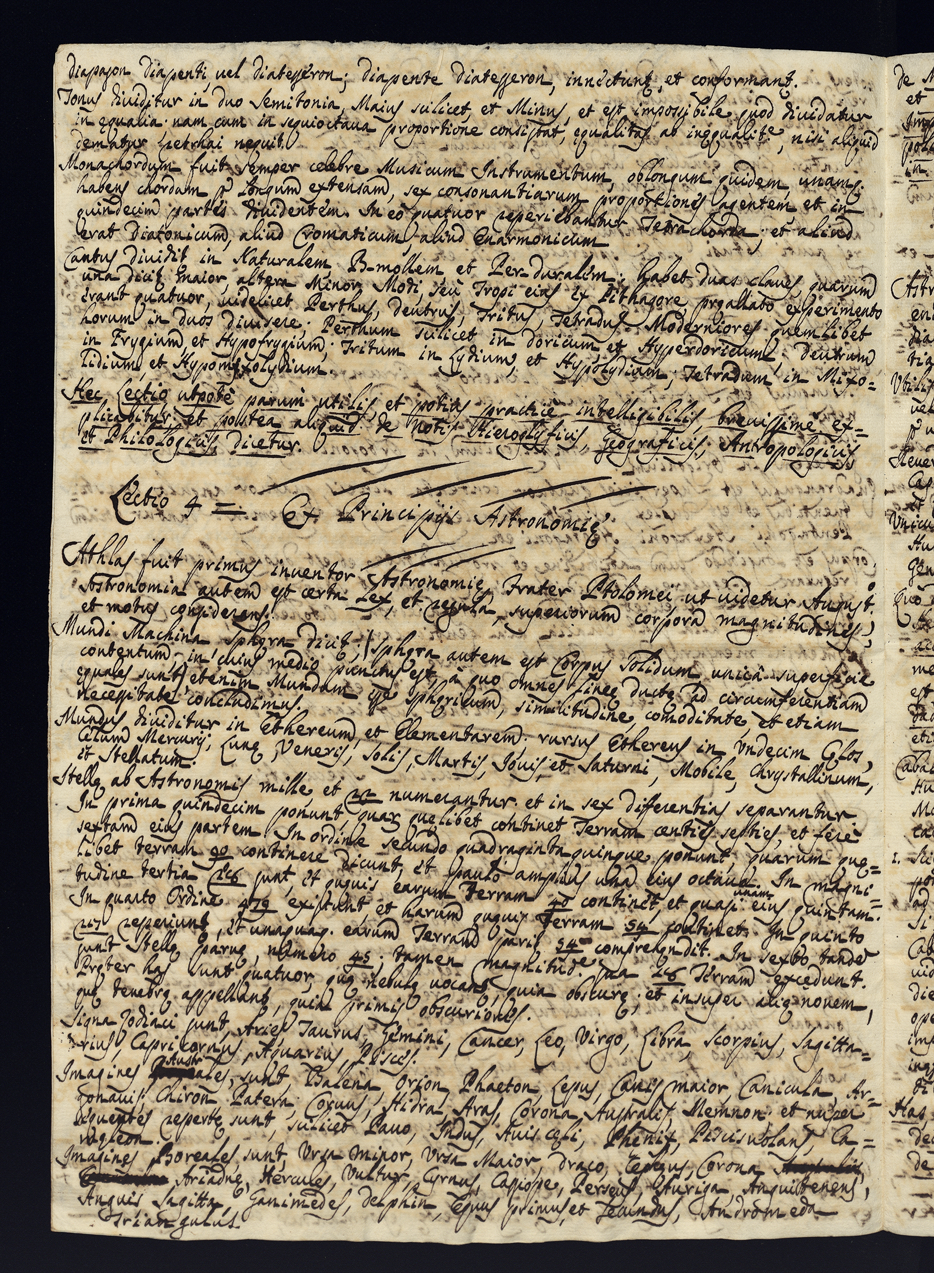 diapason diapenti vel diatesseron; diapente diatesseron, innectunt, et conformant.
Tonus diuiditur in duo Semitonia, Maius scilicet, et Minus, et est impossibile quod diuidatur
in equalia: nam cum in sequioctaua proportione consistat, equalitas ab inequalitè, nisi aliquid
dematur nequit.
Monachordum fuit semper celebre Musicum Instrumentum, oblongum quidem unam
habens chordam p longum extensam, sex consonantiarum proportiones agentem et in
quindecim partes diuidentem. In eo quatuor reperiebantur Tetrachorda; et aliud
erat Diatonicum, aliud Cromaticum aliud Enarmonicum
Cantus diuidit in Naturalem B-mollem et Per-duralem. Habet duas claues quarum
una dicit maior, altera Minor. Modi seu Tropi eius ex Pithagore prgallato experimento
erant quatuor, uidelicet Perthus, deutrus, Tritus, Tetradus. Moderniores quemlibet
horum in duos diuisere: Perthum scilicet in doricum et Hyperdoricum deutrum
in Frygium et Hypofrygium; Tritum in Lydium, et Hypolydiam, Tetradum, in Mixo=
lidium et Hypomixolydium
Hec Lectio utpote parum utilis, et potius practicè intelligibilis, breuissime ex=
plicabitur: et postea aliquid de Notis Hieroglyficis, Geograficis, Antropologicis
et Philologicis dicetur.
Lectio 4 = Ex Principijs Astronomie
Athlas fuit primus inventor Astronomie, Frater Ptolomei ut uidetur August.
Astronomia autem est certa Lex, et regula, superiorum corpora magnitudines,
et motus considerans.
Mundi Machina sphera dicit, Sphera autem est Corpus Solidum unica superficie
contentum in cuius medio punctus est, a quo omnes linee ducte ad circumferentiam
equales sunt; etenim Mundum esse sphericum, similitudine, comoditate, et etiam
necessitate concludimus.
Mundus diuiditur in Ethereum, et Elementarem: rursus Ethereus in Vndecim Celos,
Celum Mercurij, Lune, Veneris, Solis, Martis, Iouis, et Saturni, Mobile, Chrystallinum,
et Stellatum.
Stelle ab Astronomis mille et 22 numerantur et in sex differentias separantur
In prima quindecim ponunt quar quelibet continet Terram centies septies, et ferè
sextam eius partem. In ordine secundo quadraginta quinque ponunt, quarum que=
libet terram 90 continere dicunt, et paulo amplius una eius octaua. In magni=
tudine tertia 208 sunt, et queuis earum Terram 40 continet, et quasi eius unam quintam.
In quarto Ordine 479 existunt et harum queuis Terram 54 continet. In quinto
217 reperiunt, et unaquaq. earum Terram parit 54 comprehendit. In sexto tande
sunt stelle parue, numero 45; tamen magnitudine sua 18 Terram excedunt.
Preter has sunt quatuor, que nebule uocant, quia obscure; et insuper alie nouem,
que tenebre appellant, quia primis obscuriores.
Signa Zodiaci sunt, Aries Taurus, Gemini, Cancer, Leo, Virgo, Libra Scorpius, Sagitta=
rius, Capricornus, Aquarius, Pisces.
Imagines Australes, sunt Balena, Orion, Phaeton, Lepus, Canis maior Canicula, Ar=
gonauis, Chiron Patera Coruus, Hidra, Aras, Corona Australis, Memnon et nuper
sequentes reperte sunt, scilicet Pauo, Indus, Auis celi, Phenix, Piscis uolans Ca=
meleon.
Imagines Boreales, sunt, Vrsa Minor, Vrsa Maior, draco, Cepheus Corona
Ariadne, Hercules, Vultur, Cygnus, Cassiope, Perseus, Auriga, Anguitenens,
Anguis Sagitta, Ganimedes, Delphin, Equus primus et Secundus, Andromeda
Triangulus.